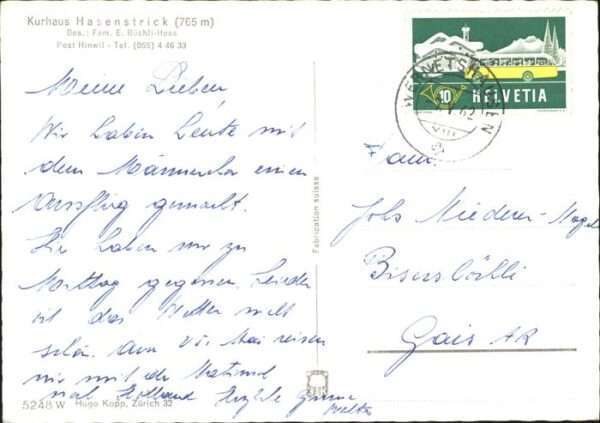 Kurhaus Hasenstrick (765 m)
Bes.: Fam. E. Büchli-Hess
Post Hinwil - Tel. (055) 4 46 33
10 HELVETIA
WERNETSHAUSEN
62
Meine Lieben
Wir haben heute mit
dem Männerchor einen
Ausflug gemacht.
Hier haben wir zu
Mittag gegessen. Leider
ist das Wetter nicht
schön. Am Mai reisen
wir mit der
nach Holland Herzliche Grüsse
Fabrication suisse
Fam.
Jobs Niederer-
Gais AR
5248 W Hugo Kopp, Zürich 32